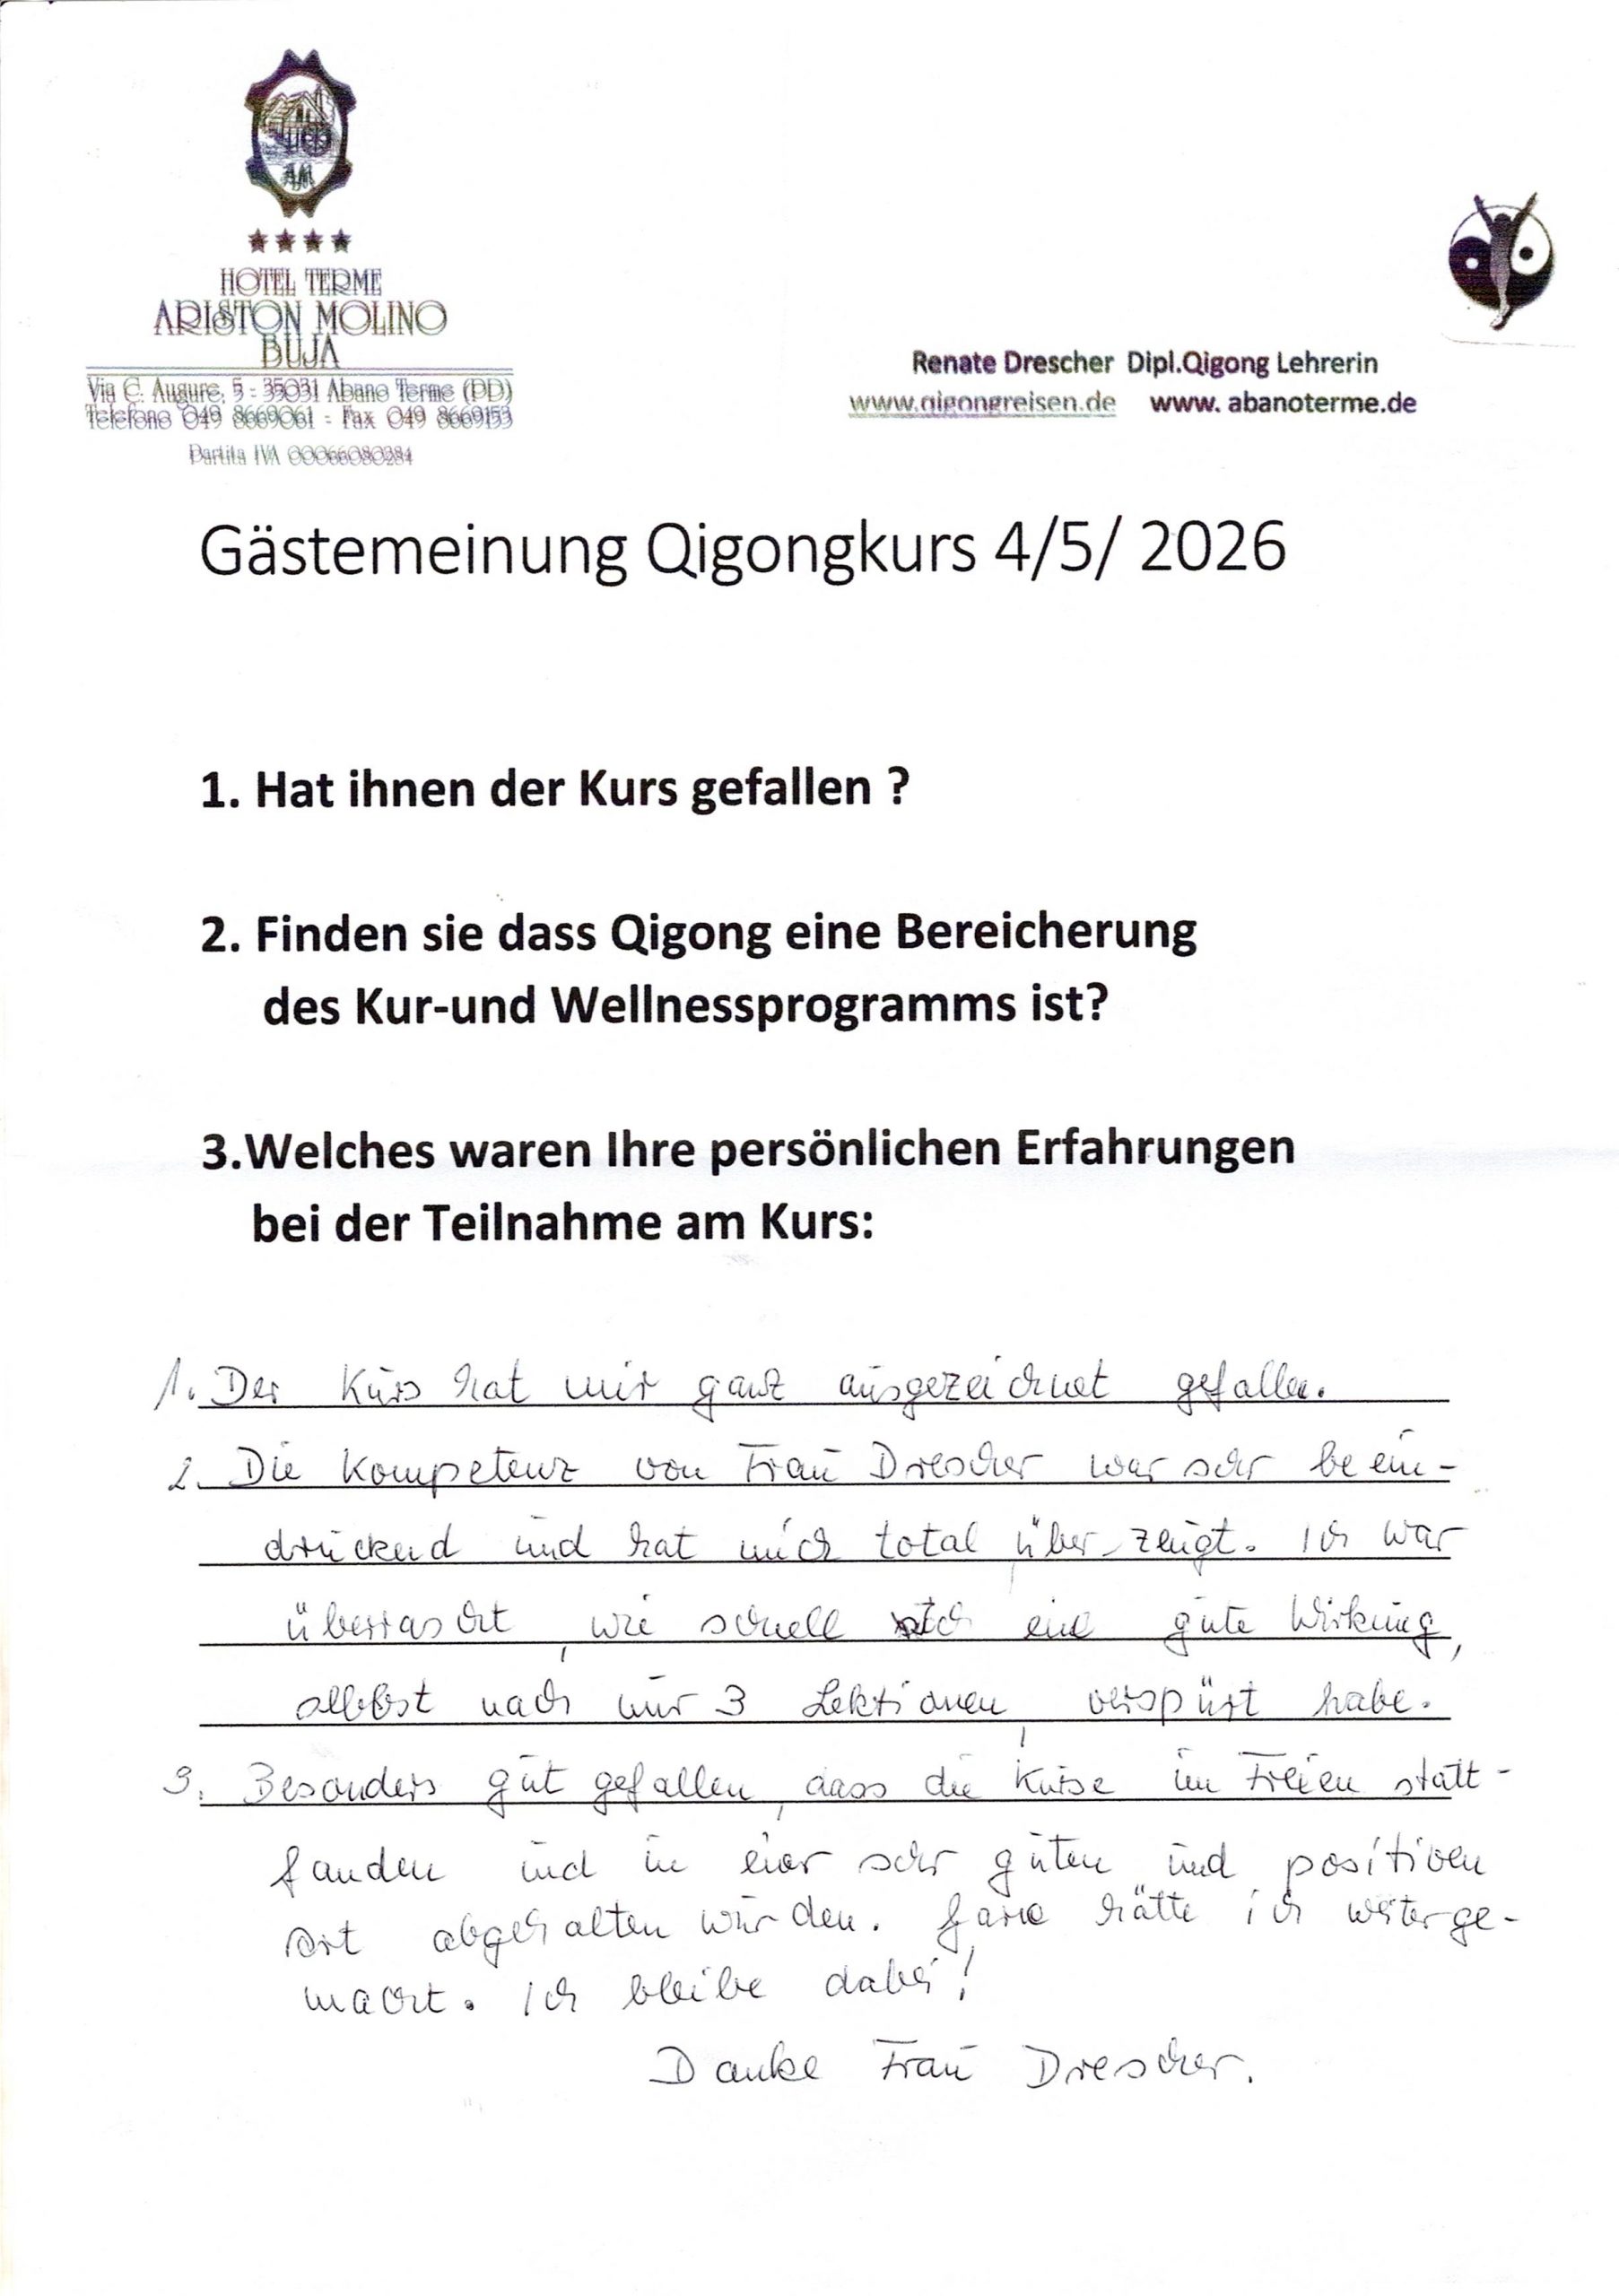 ★★★★
HOTEL TERME
ARISTON MOLINO
BUJA
Via C. Augure, 5 - 35031 Abano Terme (PD)
Telefono 049 8669061 - Fax 049 8669153
Partita IVA 00066080284
Renate Drescher Dipl.Qigong Lehrerin
www.qigongreisen.de www. abanoterme.de
Gästemeinung Qigongkurs 4/5/ 2026
1. Hat ihnen der Kurs gefallen ?
2. Finden sie dass Qigong eine Bereicherung
des Kur-und Wellnessprogramms ist?
3.Welches waren Ihre persönlichen Erfahrungen
bei der Teilnahme am Kurs:
1. Der Kurs hat mir ganz ausgezeichnet gefallen.
2. Die Kompetenz von Frau Drescher war sehr beein-
druckend und hat mich total überzeugt. Ich war
überrascht, wie schnell ich eine gute Wirkung,
selbst nach nur 3 Lektionen, verspürt habe.
3. Besonders gut gefallen, dass die Kurse im Freien statt-
fanden und in einer sehr guten und positiven
Art abgehalten wurden. Gerne hätte ich weiterge-
macht. Ich bleibe dabei!
Danke Frau Drescher.